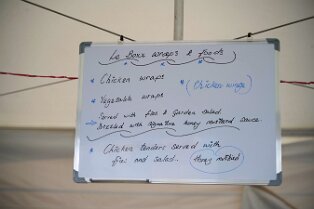 Le Box wraps & foods
* Chicken wraps
* (Chicken wings)
* Vegetable wraps
Served with fries & Garden salad
Drizzled with honey mustard sauce.
* Chicken tenders served with
fries and salad. Honey mustard